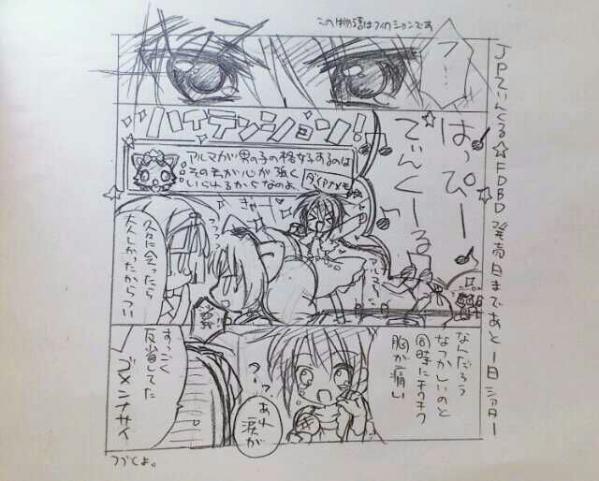 この物語はフィクションです
JPてぃんくる☆FDBD 発売日まであと1日シアター
フ…
はっぴー
てぃんくーる
ハイテンション!
アルマが男の子の格好するのは
その方が心が強く
いられるからなのよ
久々に会ったら
大人しかったからつい
なんだろう
なつかしいのと
同時にチクチク
胸が痛い
あれ
涙が
すっごく
反省してた
ゴメンナサイ
つづくよ。